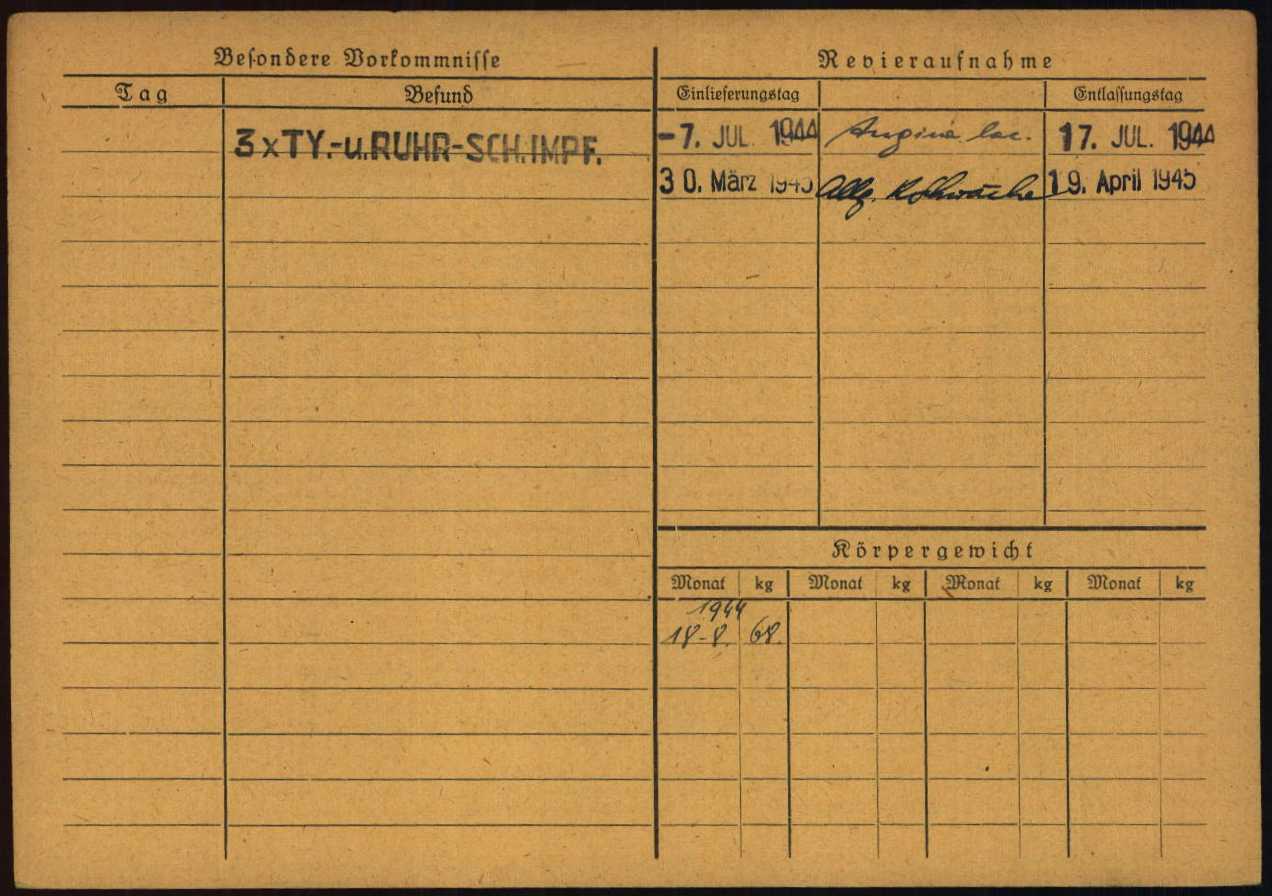 Besondere Vorkommnisse
Tag Befund
3xTY.-u.RUHR-SCH.IMPF.
Revieraufnahme
Einlieferungstag Entlassungstag
-7. JUL. 1944 Angina lac. 17. JUL. 1944
30. März 1945 Allg. Kschwäche 19. April 1945
Körpergewicht
Monat kg Monat kg Monat kg Monat kg
1944
18-8. 68.